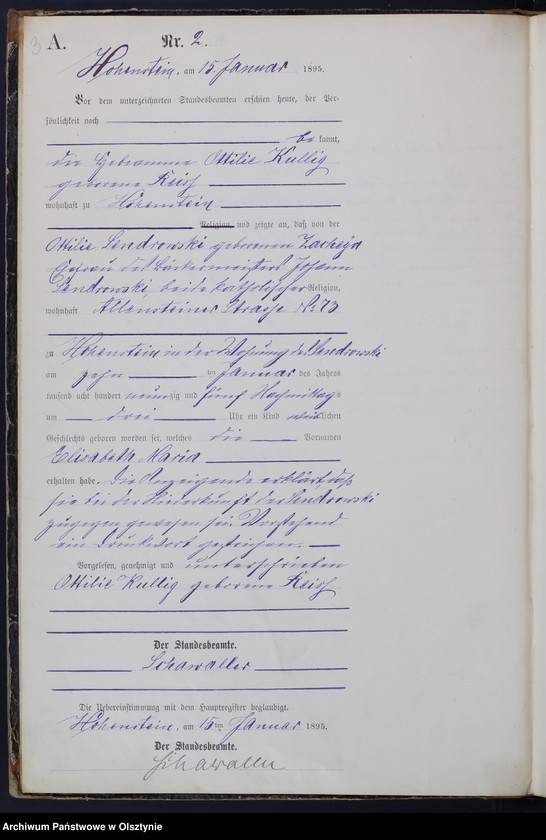 3 A. Nr. 2.
Hohenstein, am 15. Januar 1895.
Vor dem unterzeichneten Standesbeamten erschien heute, der Per-
sönlichkeit nach
be kannt,
die Hebeamme Ottilie Kullig
geborene Reiß
wohnhaft zu Hohenstein
Religion, und zeigte an, daß von der
Ottilie Sendrowski geborenen
Ehefrau des Bäckermeisters Johann
Sendrowski, beide katholischer Religion,
wohnhaft Allensteiner Strasse No 73
zu Hohenstein in der Wohnung des Sendrowski
am zehn ten Januar des Jahres
tausend acht hundert neunzig und fünf Nachmittags
um drei Uhr ein Kind weiblichen
Geschlechts geboren worden sei, welches die Vornamen
Elisabeth Maria
erhalten habe. Die Anzeigende erklärt, daß
sie bei der Niederkunft der Sendrowski
zugegen gewesen sei. Vorstehend
ein Druckwort gestrichen.
Vorgelesen, genehmigt und unterschrieben
Ottilie Kullig geborene Reiß
Der Standesbeamte.
Schawaller
Die Uebereinstimmung mit dem Hauptregister beglaubigt.
Hohenstein, am 15ten Januar 1895.
Der Standesbeamte.
Schawaller
Archiwum Państwowe w Olsztynie